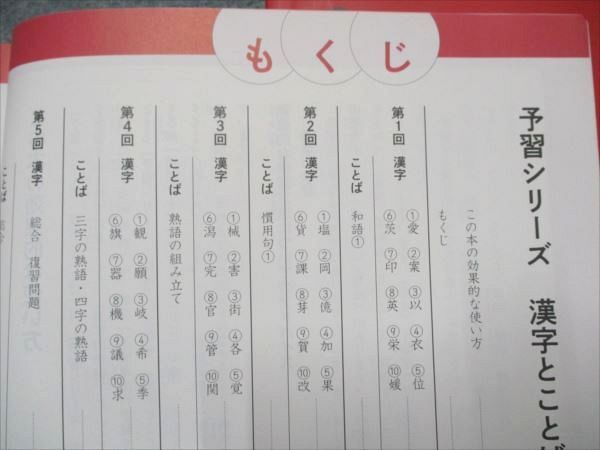 もくじ
予習シリーズ 漢字とことば
この本の効果的な使い方
もくじ
第1回 漢字 ①愛 ②案 ③以 ④衣 ⑤位
⑥茨 ⑦印 ⑧英 ⑨栄 ⑩媛
ことば 和語①
第2回 漢字 ①塩 ②岡 ③億 ④加 ⑤果
⑥貨 ⑦課 ⑧芽 ⑨賀 ⑩改
ことば 慣用句①
第3回 漢字 ①械 ②害 ③街 ④各 ⑤覚
⑥潟 ⑦完 ⑧官 ⑨管 ⑩関
ことば 熟語の組み立て
第4回 漢字 ①観 ②願 ③岐 ④希 ⑤季
⑥旗 ⑦器 ⑧機 ⑨議 ⑩求
ことば 三字の熟語・四字の熟語
第5回 漢字 総合 復習問題
ことば